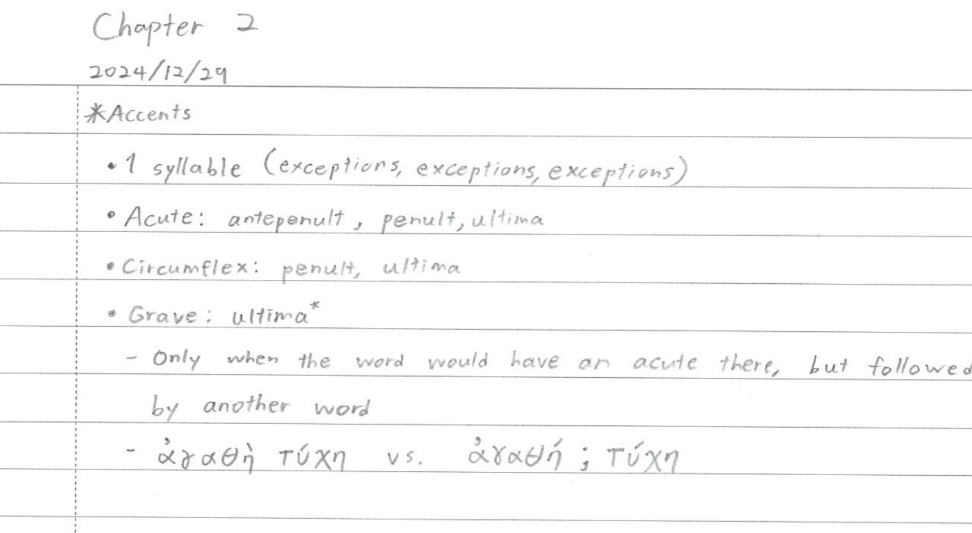 Chapter 2
2024/12/29
*Accents
• 1 syllable (exceptions, exceptions, exceptions)
• Acute: antepenult, penult, ultima
• Circumflex: penult, ultima
• Grave: ultima*
- Only when the word would have an acute there, but followed
by another word
- ἀγαθὴ τύχη vs. ἀγαθή; τύχη